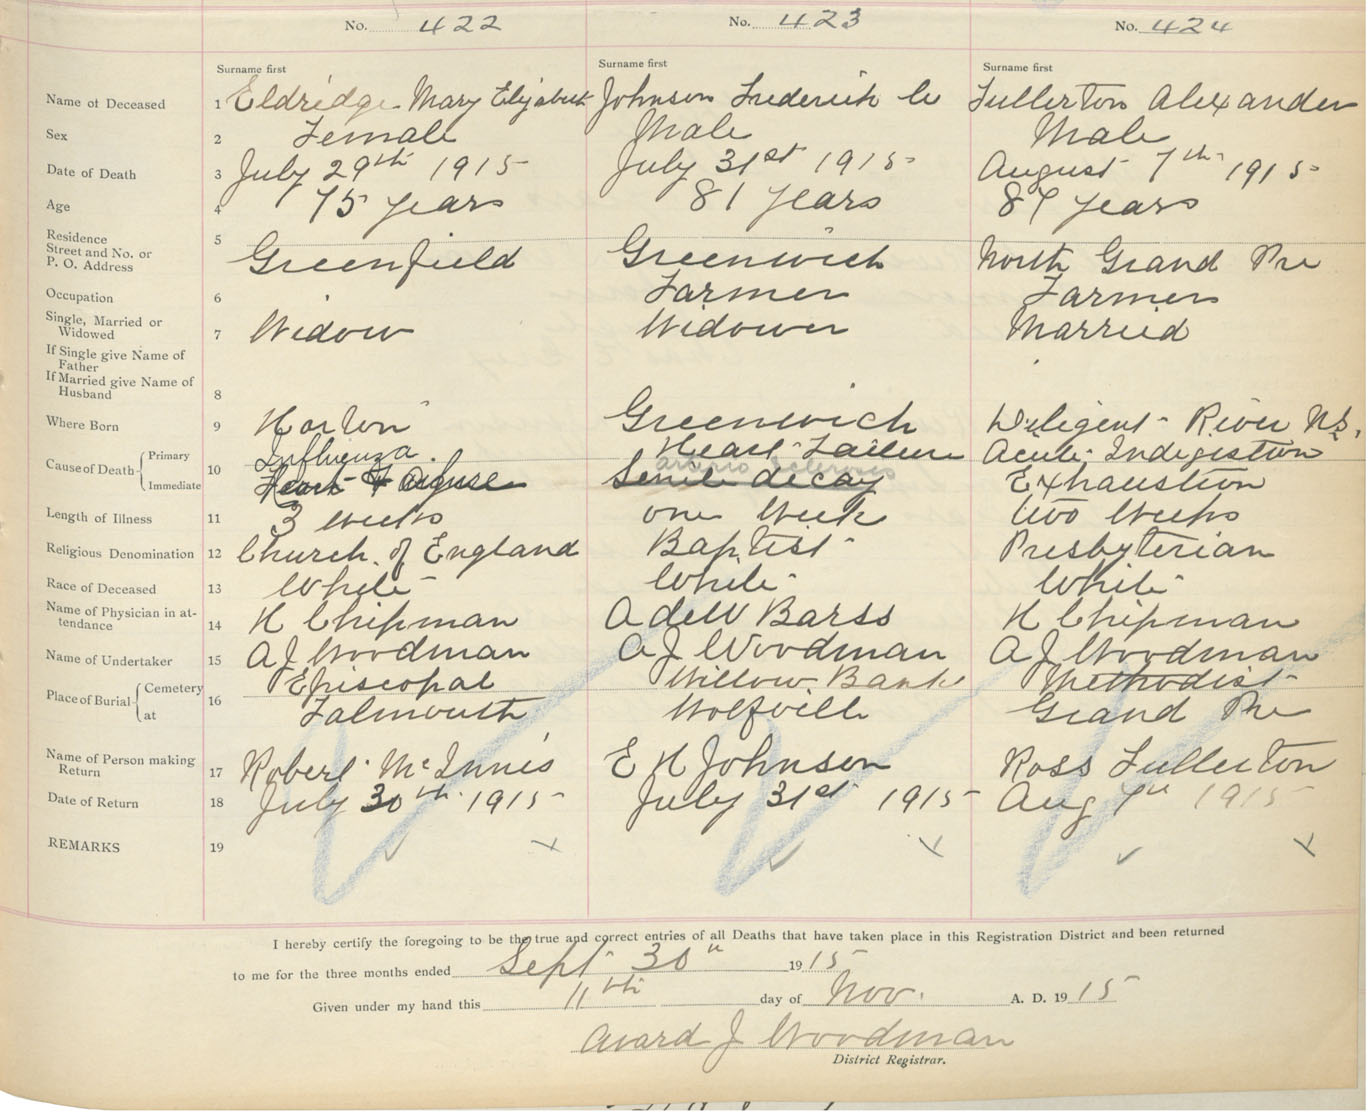 No. 422 No. 423 No. 424
Surname first Surname first Surname first
Name of Deceased 1 Eldridge Mary Elizabeth Johnson Frederick Fullerton Alexander
Sex 2 Female Male Male
Date of Death 3 July 29th 1915 July 31st 1915 August 7th 1915
Age 4 75 years 81 years years
Residence
Street and No. or
P. O. Address 5 Greenfield Greenwich North Grand Pre
Occupation 6 Farmer Farmer
Single, Married or
Widowed 7 Widow Widower Married
If Single give Name of
Father
If Married give Name of
Husband 8
Where Born 9 Horton Greenwich Diligent River N.S.
Cause of Death Primary 10 Influenza. Heart Failure Acute Indigestion
arterio sclerosis
Immediate Heart Senile decay Exhaustion
Length of Illness 11 3 weeks one week two weeks
Religious Denomination 12 Church of England Baptist Presbyterian
Race of Deceased 13 White White White
Name of Physician in at-
tendance 14 H Chipman A deW Barss H Chipman
Name of Undertaker 15 A J Woodman A J Woodman A J Woodman
Place of Burial Cemetery 16 Episcopal Willow Bank Methodist
at Falmouth Wolfville Grand Pre
Name of Person making
Return 17 Robert McInnis E H Johnson Ross Fullerton
Date of Return 18 July 30th 1915 July 31st 1915 Aug 7th 1915
REMARKS 19
I hereby certify the foregoing to be the true and correct entries of all Deaths that have taken place in this Registration District and been returned
to me for the three months ended Sept 30th 1915
Given under my hand this 11th day of Nov. A. D. 1915
Avard J Woodman
District Registrar.